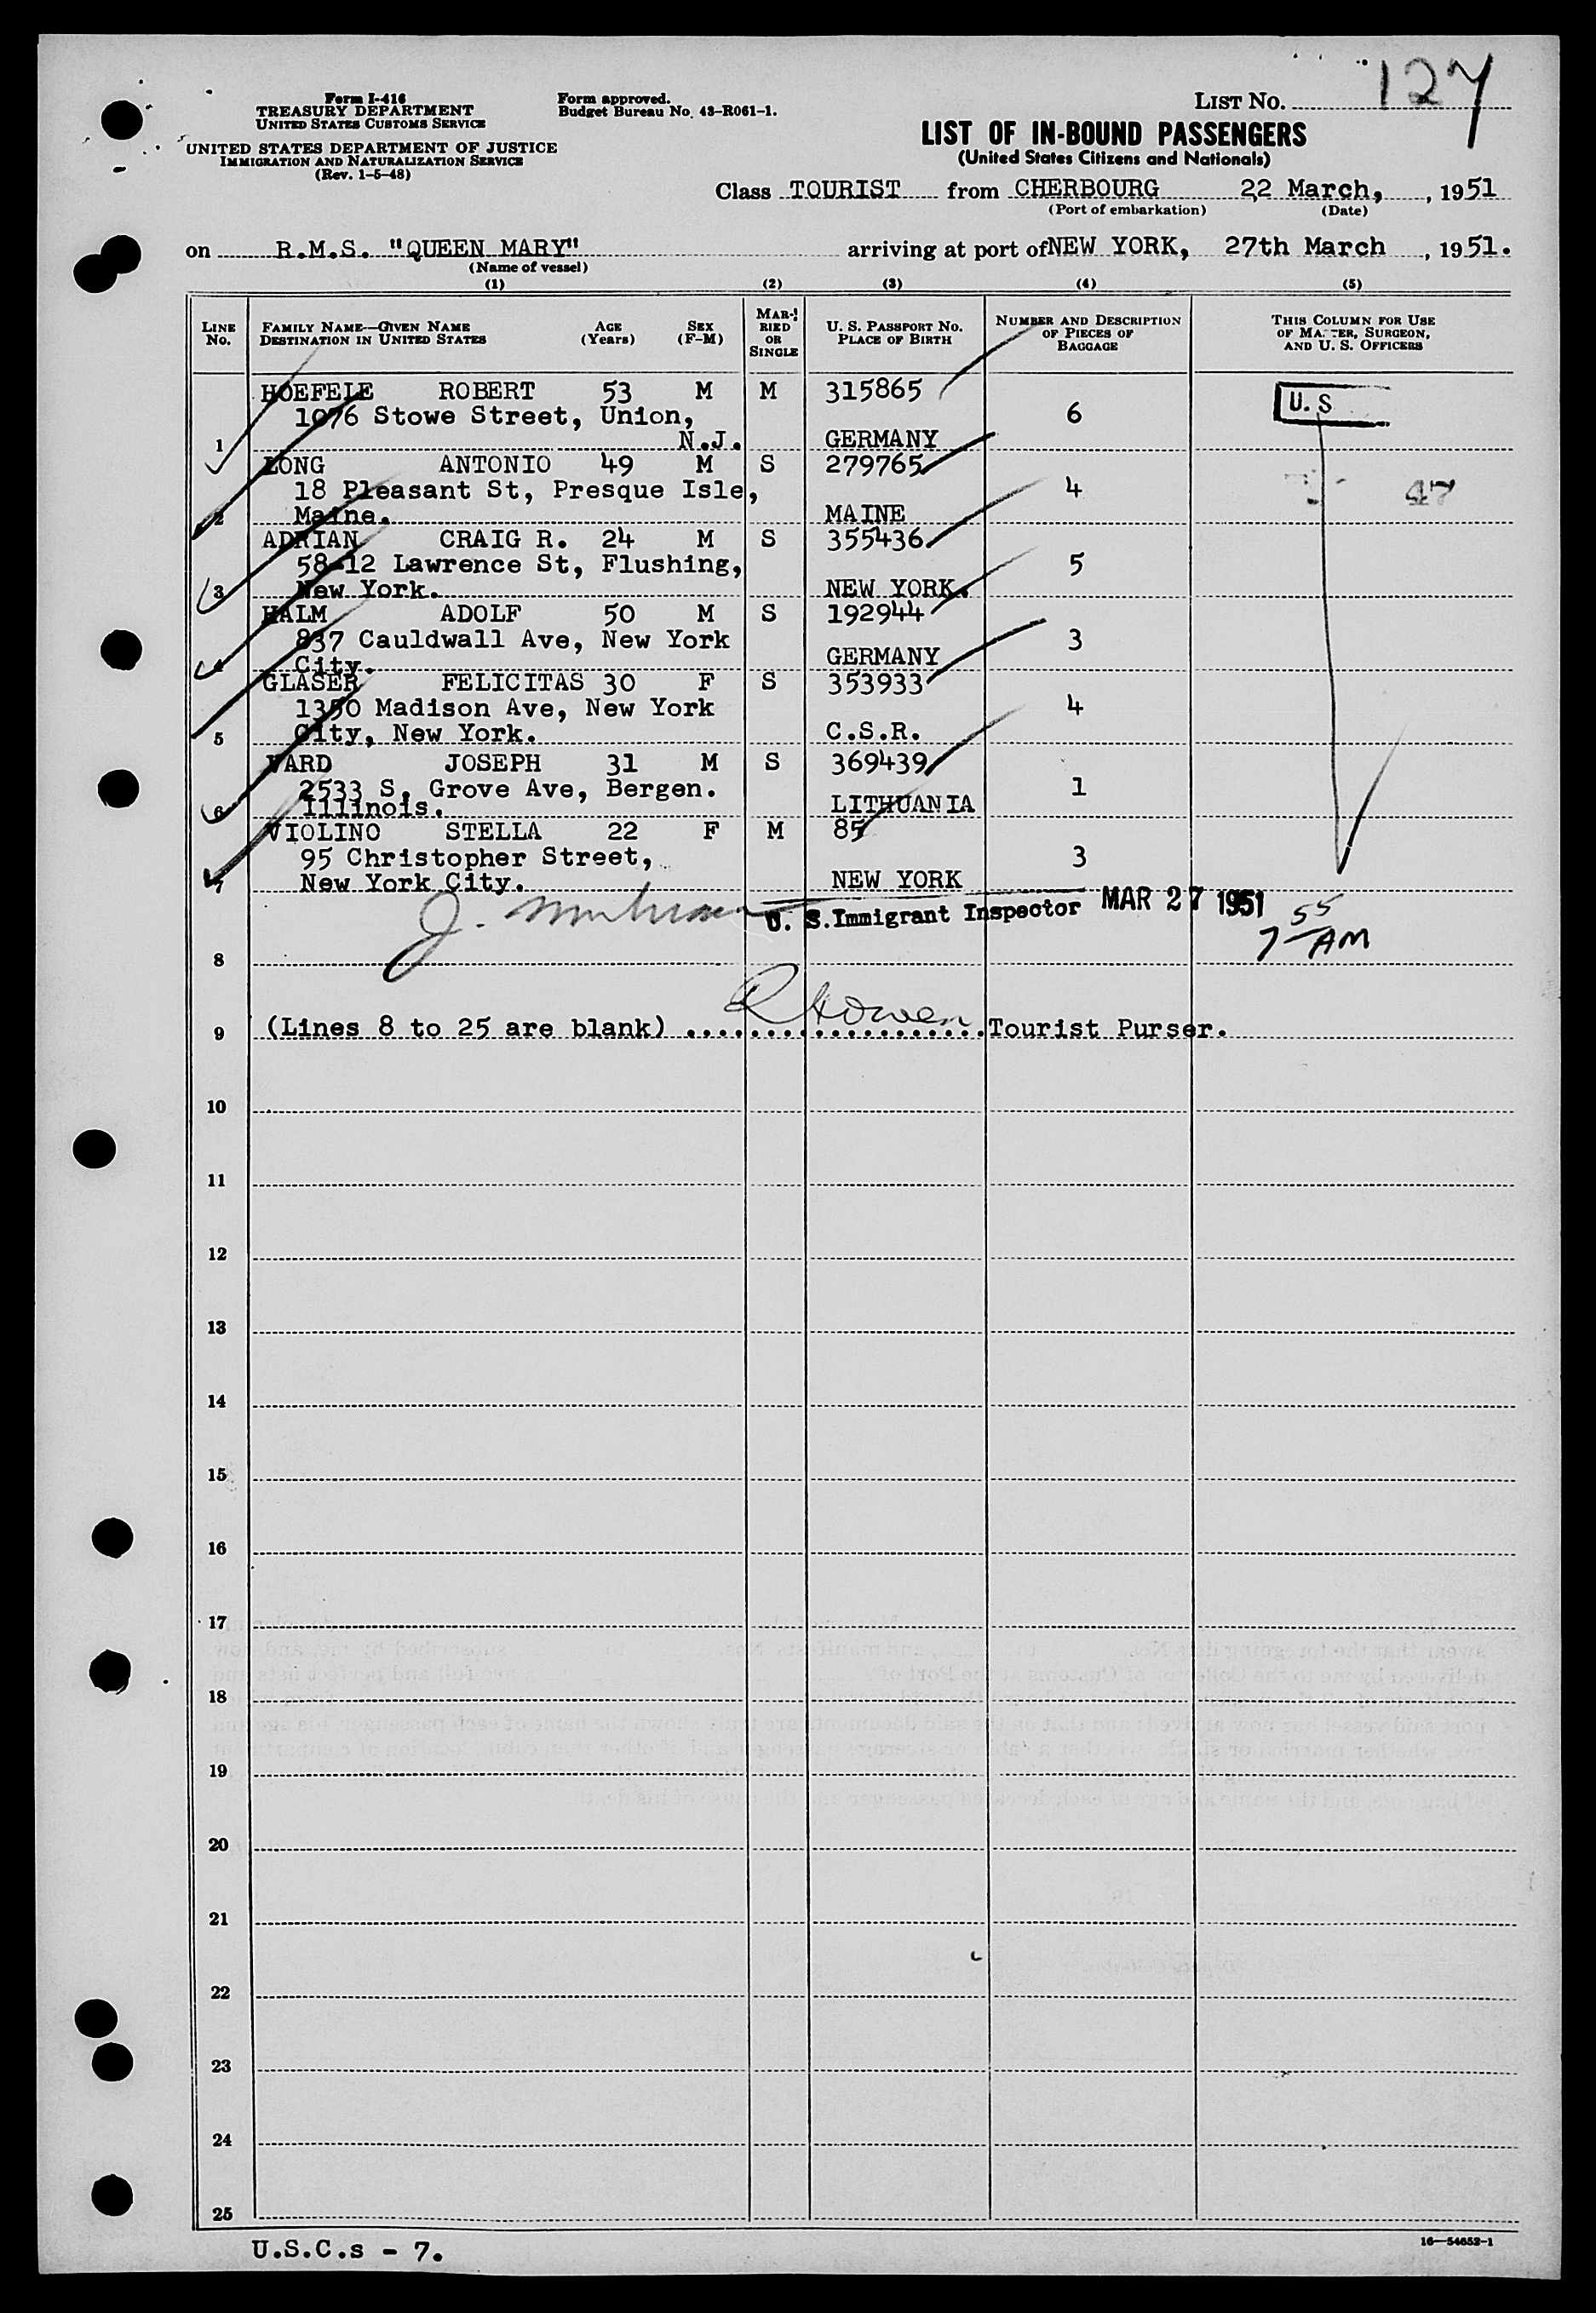 127
Form I-416
TREASURY DEPARTMENT
UNITED STATES CUSTOMS SERVICE
UNITED STATES DEPARTMENT OF JUSTICE
IMMIGRATION AND NATURALIZATION SERVICE
(Rev. 1-5-48)
Form approved.
Budget Bureau No. 43-R061-1.
LIST NO.
LIST OF IN-BOUND PASSENGERS
(United States Citizens and Nationals)
Class TOURIST from CHERBOURG 22 March, , 1951
(Port of embarkation) (Date)
on R.M.S. "QUEEN MARY" arriving at port of NEW YORK, 27th March , 1951.
(Name of vessel)
(1) (2) (3) (4) (5)
LINE No. FAMILY NAME—GIVEN NAME DESTINATION IN UNITED STATES AGE (Years) SEX (F-M) MARRIED OR SINGLE U. S. PASSPORT NO. PLACE OF BIRTH NUMBER AND DESCRIPTION OF PIECES OF BAGGAGE THIS COLUMN FOR USE OF MASTER, SURGEON, AND U. S. OFFICERS
HOEFELE ROBERT 53 M M 315865 U. S
1076 Stowe Street, Union, 6
1 N.J. GERMANY
LONG ANTONIO 49 M S 279765
18 Pleasant St, Presque Isle, 4 47
2 Maine. MAINE
ADRIAN CRAIG R. 24 M S 355436
58-12 Lawrence St, Flushing, 5
3 New York. NEW YORK.
HALM ADOLF 50 M S 192944
837 Cauldwall Ave, New York 3
4 City. GERMANY
GLASER FELICITAS 30 F S 353933
1350 Madison Ave, New York 4
5 City, New York. C.S.R.
VARD JOSEPH 31 M S 369439
2533 S. Grove Ave, Bergen. 1
6 Illinois. LITHUANIA
VIOLINO STELLA 22 F M 85
95 Christopher Street, 3
7 New York City. NEW YORK
U. S. Immigrant Inspector MAR 27 1951
7 55 AM
8
9 (Lines 8 to 25 are blank) .................. Tourist Purser.
10
11
12
13
14
15
16
17
18
19
20
21
22
23
24
25
U.S.C.s - 7.
16—54652-1